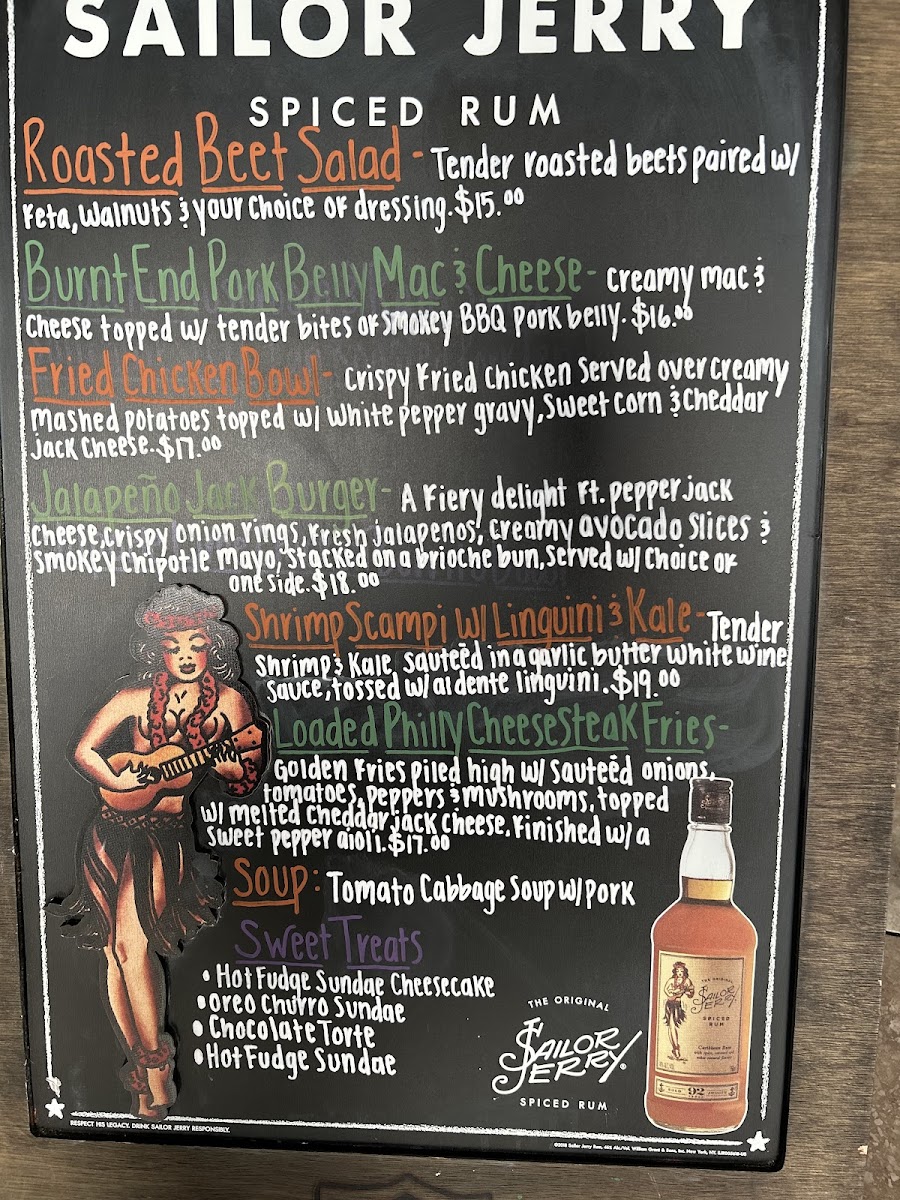 SAILOR JERRY
SPICED RUM
Roasted Beet Salad - Tender roasted beets paired w/
Feta, walnuts & your choice of dressing. $15.00
Burnt End Pork Belly Mac & Cheese - Creamy mac &
Cheese topped w/ tender bites of smokey BBQ pork belly. $16.00
Fried Chicken Bowl - Crispy Fried Chicken Served over creamy
mashed potatoes topped w/ white pepper gravy, sweet corn & cheddar
Jack cheese. $17.00
Jalapeño Jack Burger - A Fiery delight Ft. pepper jack
cheese, crispy onion rings, fresh jalapenos, creamy avocado slices &
smokey chipotle mayo, stacked on a brioche bun, served w/ choice of
one side. $18.00
Shrimp Scampi w/ Linguini & Kale - Tender
shrimp & Kale, sauteéd in a garlic butter white wine
sauce, tossed w/ al dente linguini. $19.00
Loaded Philly Cheesesteak Fries -
Golden Fries piled high w/ sauteéd onions,
tomatoes, peppers & mushrooms, topped
w/ melted cheddar jack cheese, Finished w/ a
sweet pepper aioli. $17.00
Soup: Tomato Cabbage Soup w/ pork
Sweet Treats
• Hot Fudge Sundae Cheesecake
• Oreo Churro Sundae
• Chocolate Torte
• Hot Fudge Sundae
THE ORIGINAL
SAILOR
JERRY®
SPICED RUM
THE ORIGINAL
SAILOR
JERRY
SPICED
RUM
Caribbean Rum
92
RESPECT HIS LEGACY. DRINK SAILOR JERRY RESPONSIBLY.